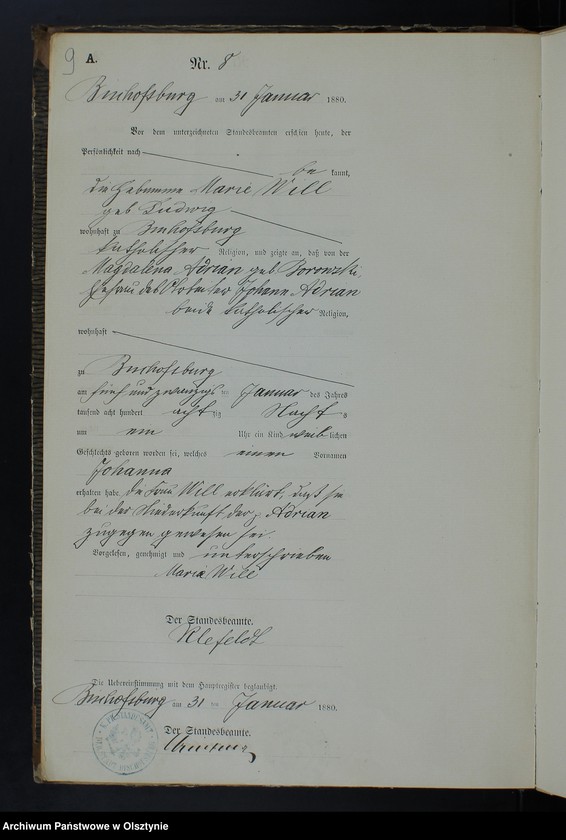 9 A.
Nr. 8
Bischofsburg am 31 Januar 1880.
Vor dem unterzeichneten Standesbeamten erschien heute, der
Persönlichkeit nach
be kannt,
die Hebamme Marie Will
geb Ludwig
wohnhaft zu Bischofsburg
katholischer Religion, und zeigte an, daß von der
Magdalena Adrian geb
Ehefrau des Arbeiter Johann Adrian
beide katholischer Religion,
wohnhaft
zu Bischofsburg
am fünf und zwanzigs ten Januar des Jahres
tausend acht hundert acht zig Nachts
um ein Uhr ein Kind weib lichen
Geschlechts geboren worden sei, welches einen Vornamen
Johanna
erhalten habe. die Frau Will erklärt, daß sie
bei der Niederkunft der Adrian
zugegen gewesen sei.
Vorgelesen, genehmigt und unterschrieben
Marie Will
Der Standesbeamte.
Klefeldt
Die Uebereinstimmung mit dem Hauptregister beglaubigt.
Bischofsburg am 31 ten Januar 1880.
Der Standesbeamte.
Archiwum Państwowe w Olsztynie